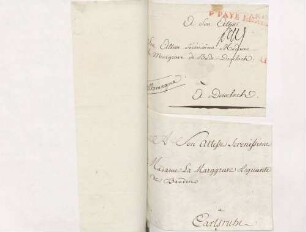 A Son Altesse
Son Altesse Sérénissime Madame
la Margrave de Bade-Dourlach
Allemagne
à Dourlach
A Son Altesse Serenissime
Madame La Marggrave Regnante
de Baden
à
Carlsruhe